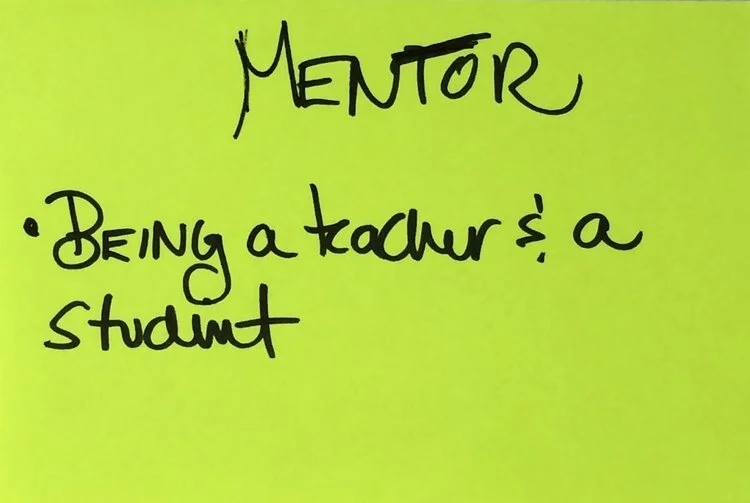 MENTOR
• BEING a teacher & a
student